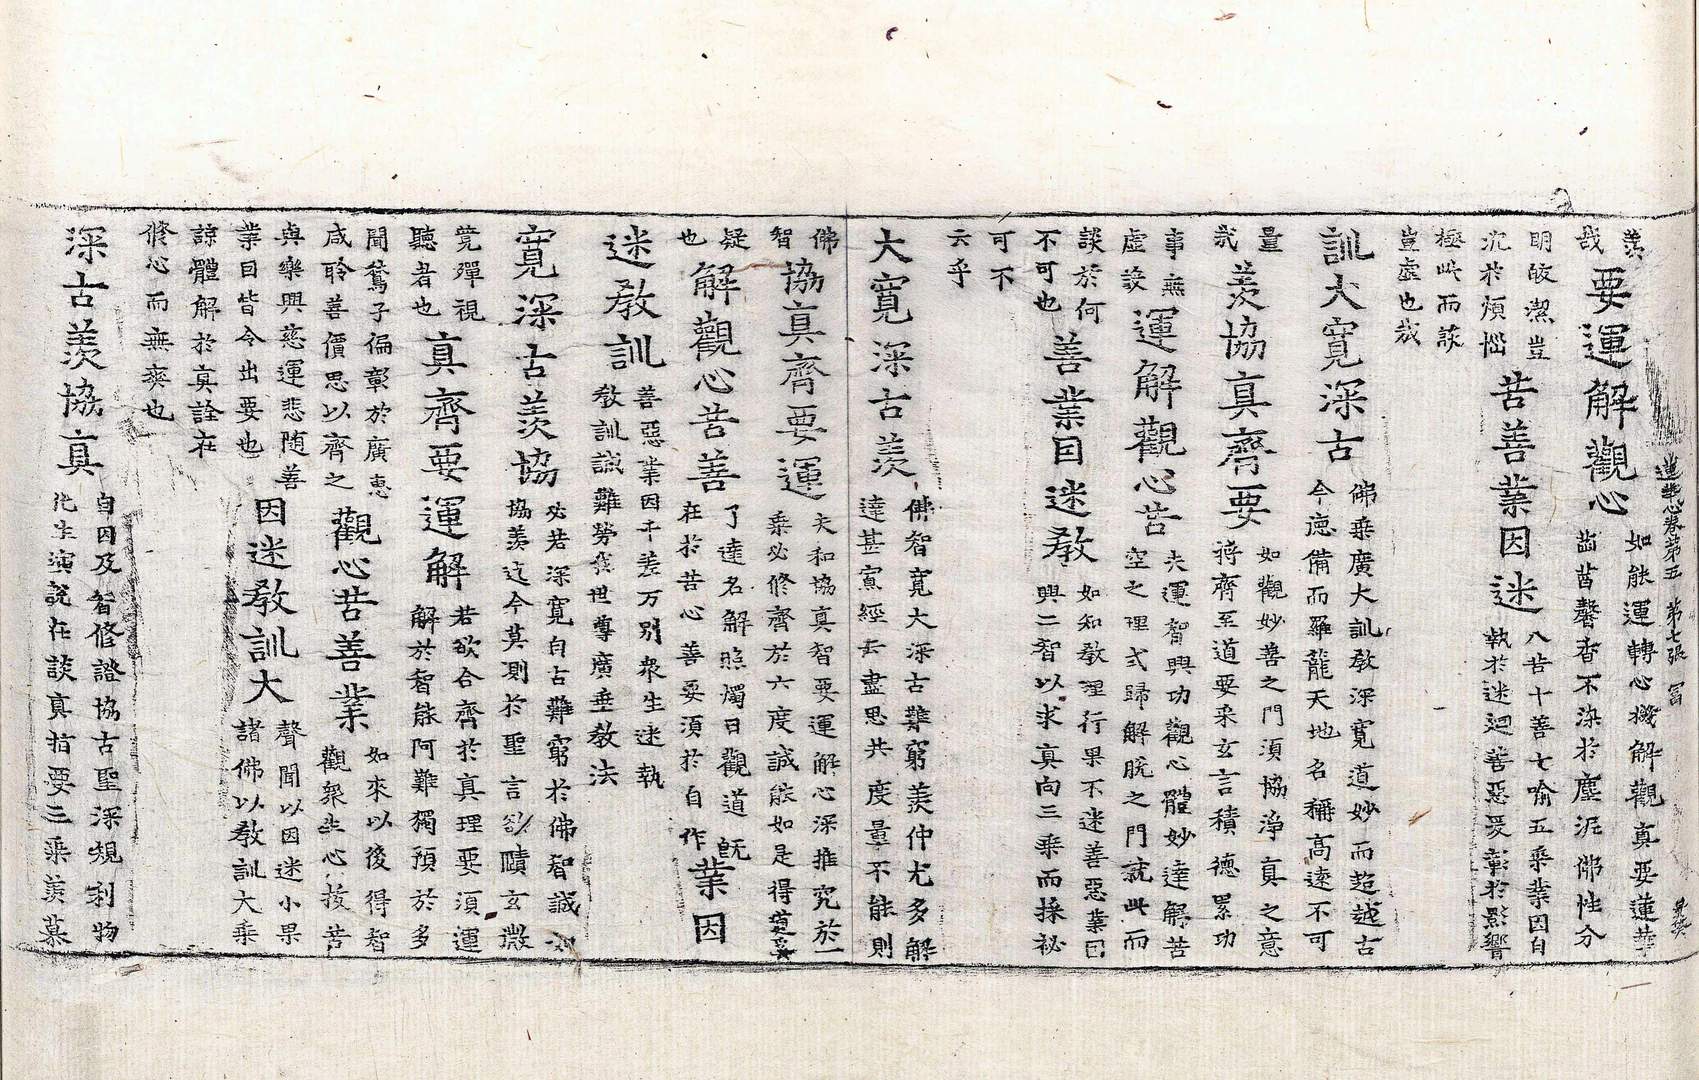 羨
哉
要運解觀心
如能運轉心機解觀真要蓮華
菡萏馨香不染於塵泥佛性分
蓮華心卷第五 第七張 冨
明皎潔豈
沉於煩惱
苦善業因迷
八苦十善七喻五乘業因自
執於迷迴善惡爰彰於影響
極此而談
豈虛也哉
訓大寬深古
佛乘廣大訓教深寬道妙而超越古
今德備而羅籠天地名稱高遠不可
量
哉
羨協真齊要
如觀妙善之門須協淨真之意
將齊至道要采玄言積德累功
事無
虛羨
運解觀心苦
夫運智興功觀心體妙達解苦
空之理式歸解脫之門就此而
談於何
不可也
善業因迷教
如知教理行果不迷善惡業因
興二智以求真向三乘而採祕
可不
云乎
大寬深古羨
佛智寬大深古難窮羨仰尤多解
達甚寡經云盡思共度量不能則
佛
智
協真齊要運
夫和協真智要運解心深推究於一
乘必修齊於六度誠能如是得
疑
也
解觀心苦善
了達名解照燭曰觀道既
在於苦心善要須於自作
業因
迷教訓
善惡業因千差万別衆生迷執
教訓誠難勞我世尊廣垂教法
寬深古羨協
必若深寬自古難窮於佛智誠
協羨迄今莫測於聖言欲賾玄微
竟殫視
聽者也
真齊要運解
若欲合齊於真理要須運
解於智能阿難獨預於多
聞鶖子偏彰於廣惠
咸聆善價思以齊之
觀心苦善業
如來以後得智
觀衆生心拔苦
與樂興慈運悲隨善
業因皆令出要也
因迷教訓大
聲聞以因迷小果
諸佛以教訓大乘
諒體解於真詮在
修心而無爽也
深古羨協真
自因及智修證協古聖深規利物
化生演說在談真指要三乘羨慕